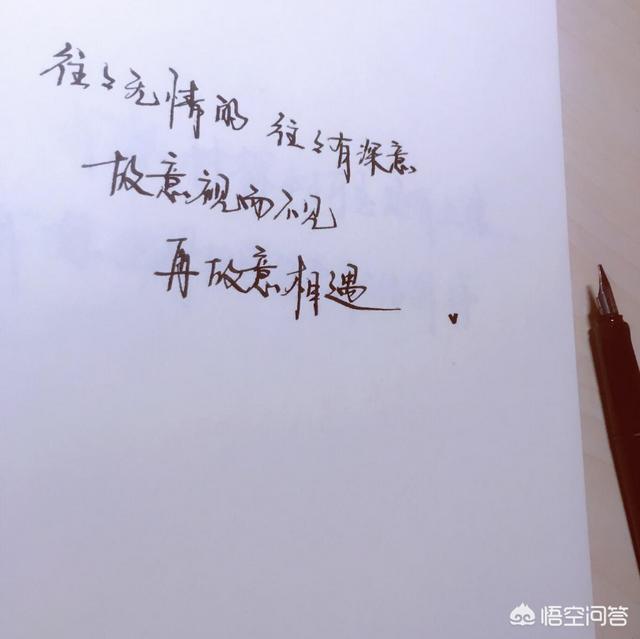 往々无情的 往々有深意
故意视而不见
再故意相遇
悟空问答